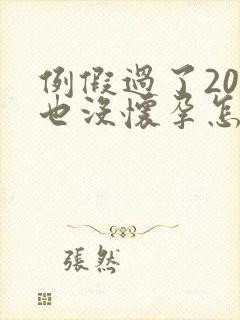 例假過了20
也沒懷孕怎
張然